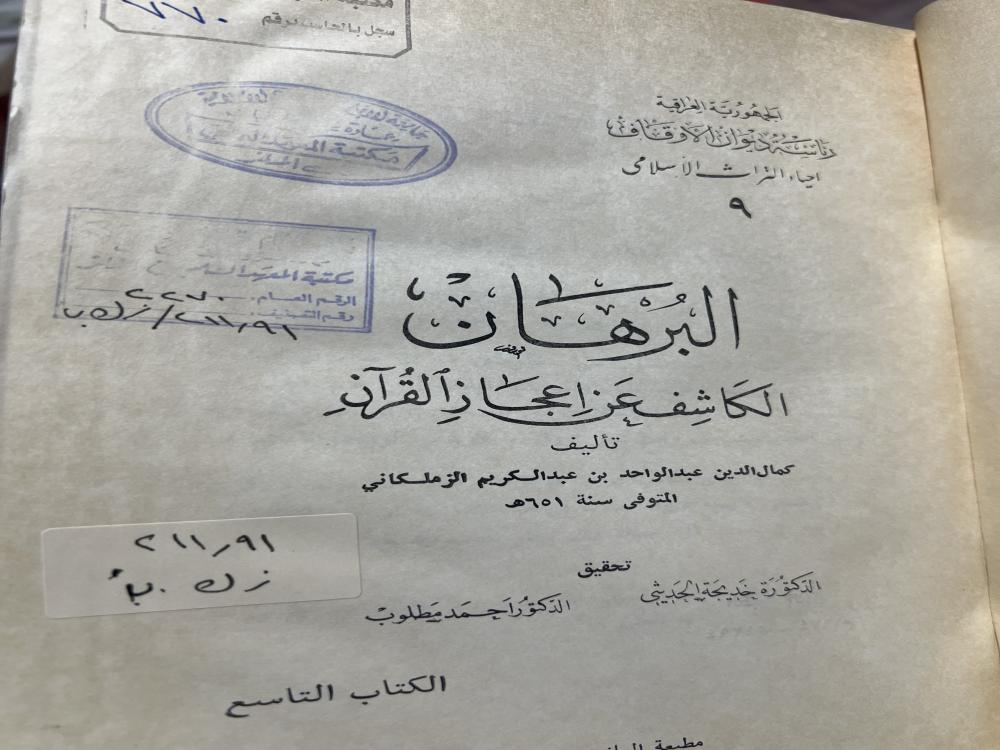 سجل بالحاسبة برقم
٧٧٠
الجمهورية العراقية
رئاسة ديوان الأوقاف
احياء التراث الأسلامى
٩
مكتبة
مكتبة المعهد
الرقم العام: ٢٢٧٠
رقم التصنيف: ٢١١,٩١/ز ك ب
البُرْهَان
الكَاشِف عَن إعجَاز القُرآن
تأليف
كمال‌الدين عبدالواحد بن عبدالكريم الزملكاني
المتوفى سنة ٦٥١هـ
تحقيق
الدكتورة خديجة الحديثي
الدكتور احمد مطلوب
٢١١,٩١
ز ك . ب
الكتاب التاسع
مطبعة